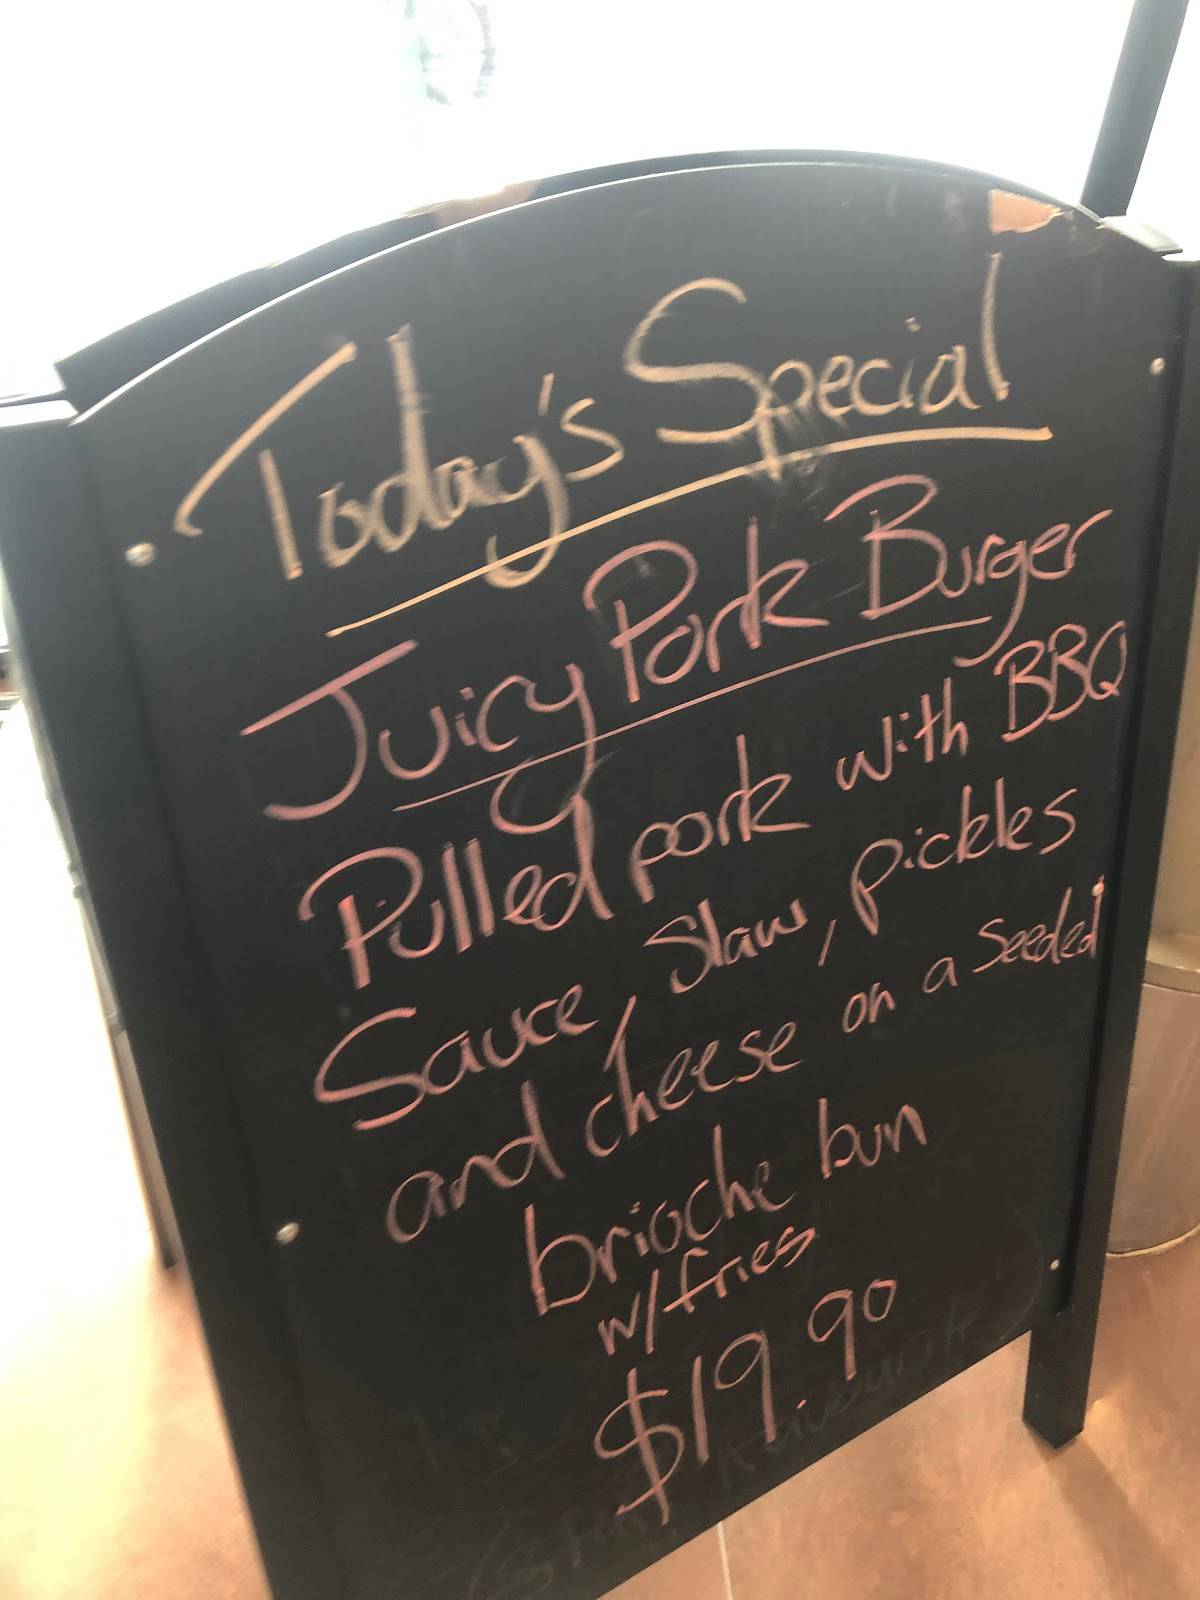 Today's Special
Juicy Pork Burger
Pulled pork with BBQ
Sauce, Slaw, pickles
and cheese on a seeded
brioche bun
w/fries
$19.90